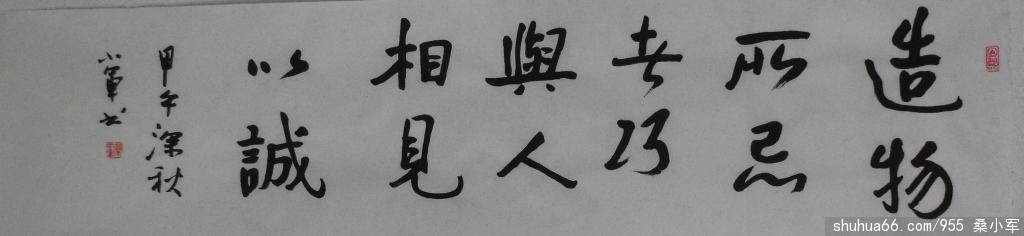 造物
所忌
者巧
與人
相見
以誠
甲午深秋
小軍书
shuhua66.com/955 桑小军